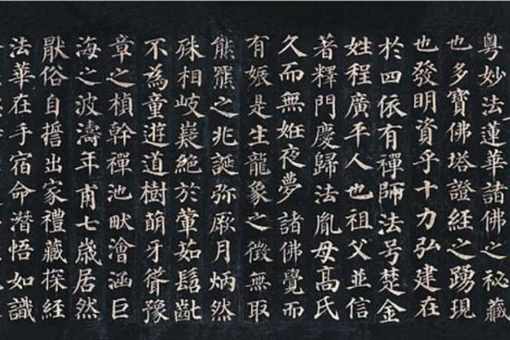 粵妙法蓮華諸佛之秘藏
也多寶佛塔證經之踴現
也發明資乎十力弘建在
於四依有禪師法号楚金
姓程廣平人也祖父並信
著釋門慶歸法胤母高氏
久而無姙夜夢諸佛覺而
有娠是生龍象之徵無取
熊羆之兆誕弥厥月炳然
殊相岐嶷絕於葷茹髫齔
不為童遊道樹萌牙聳豫
章之楨幹禪池畎澮涵巨
海之波濤年甫七歲居然
猒俗自誓出家禮藏探經
法華在手宿命潛悟如識